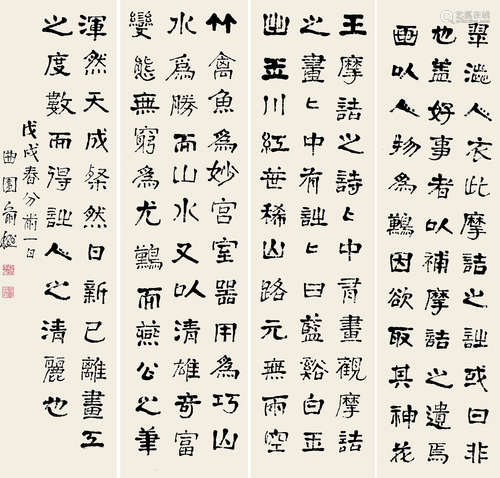 翠濕人衣此摩詰之詩或曰非
也蓋好事者以補摩詰之遺焉
画以人物為難因欲取其神花
王摩詰之詩々中有畫觀摩詰
之畫々中有詩々曰藍谿白玉
出玉川紅葉稀山路元無雨空
竹禽魚為妙宮室器用為巧山
水為勝而山水又以清雄奇富
變態無窮為尤難而燕公之筆
渾然天成粲然日新已離畫工
之度數而得詩人之清麗也
戊戌春分前一日
曲園俞樾